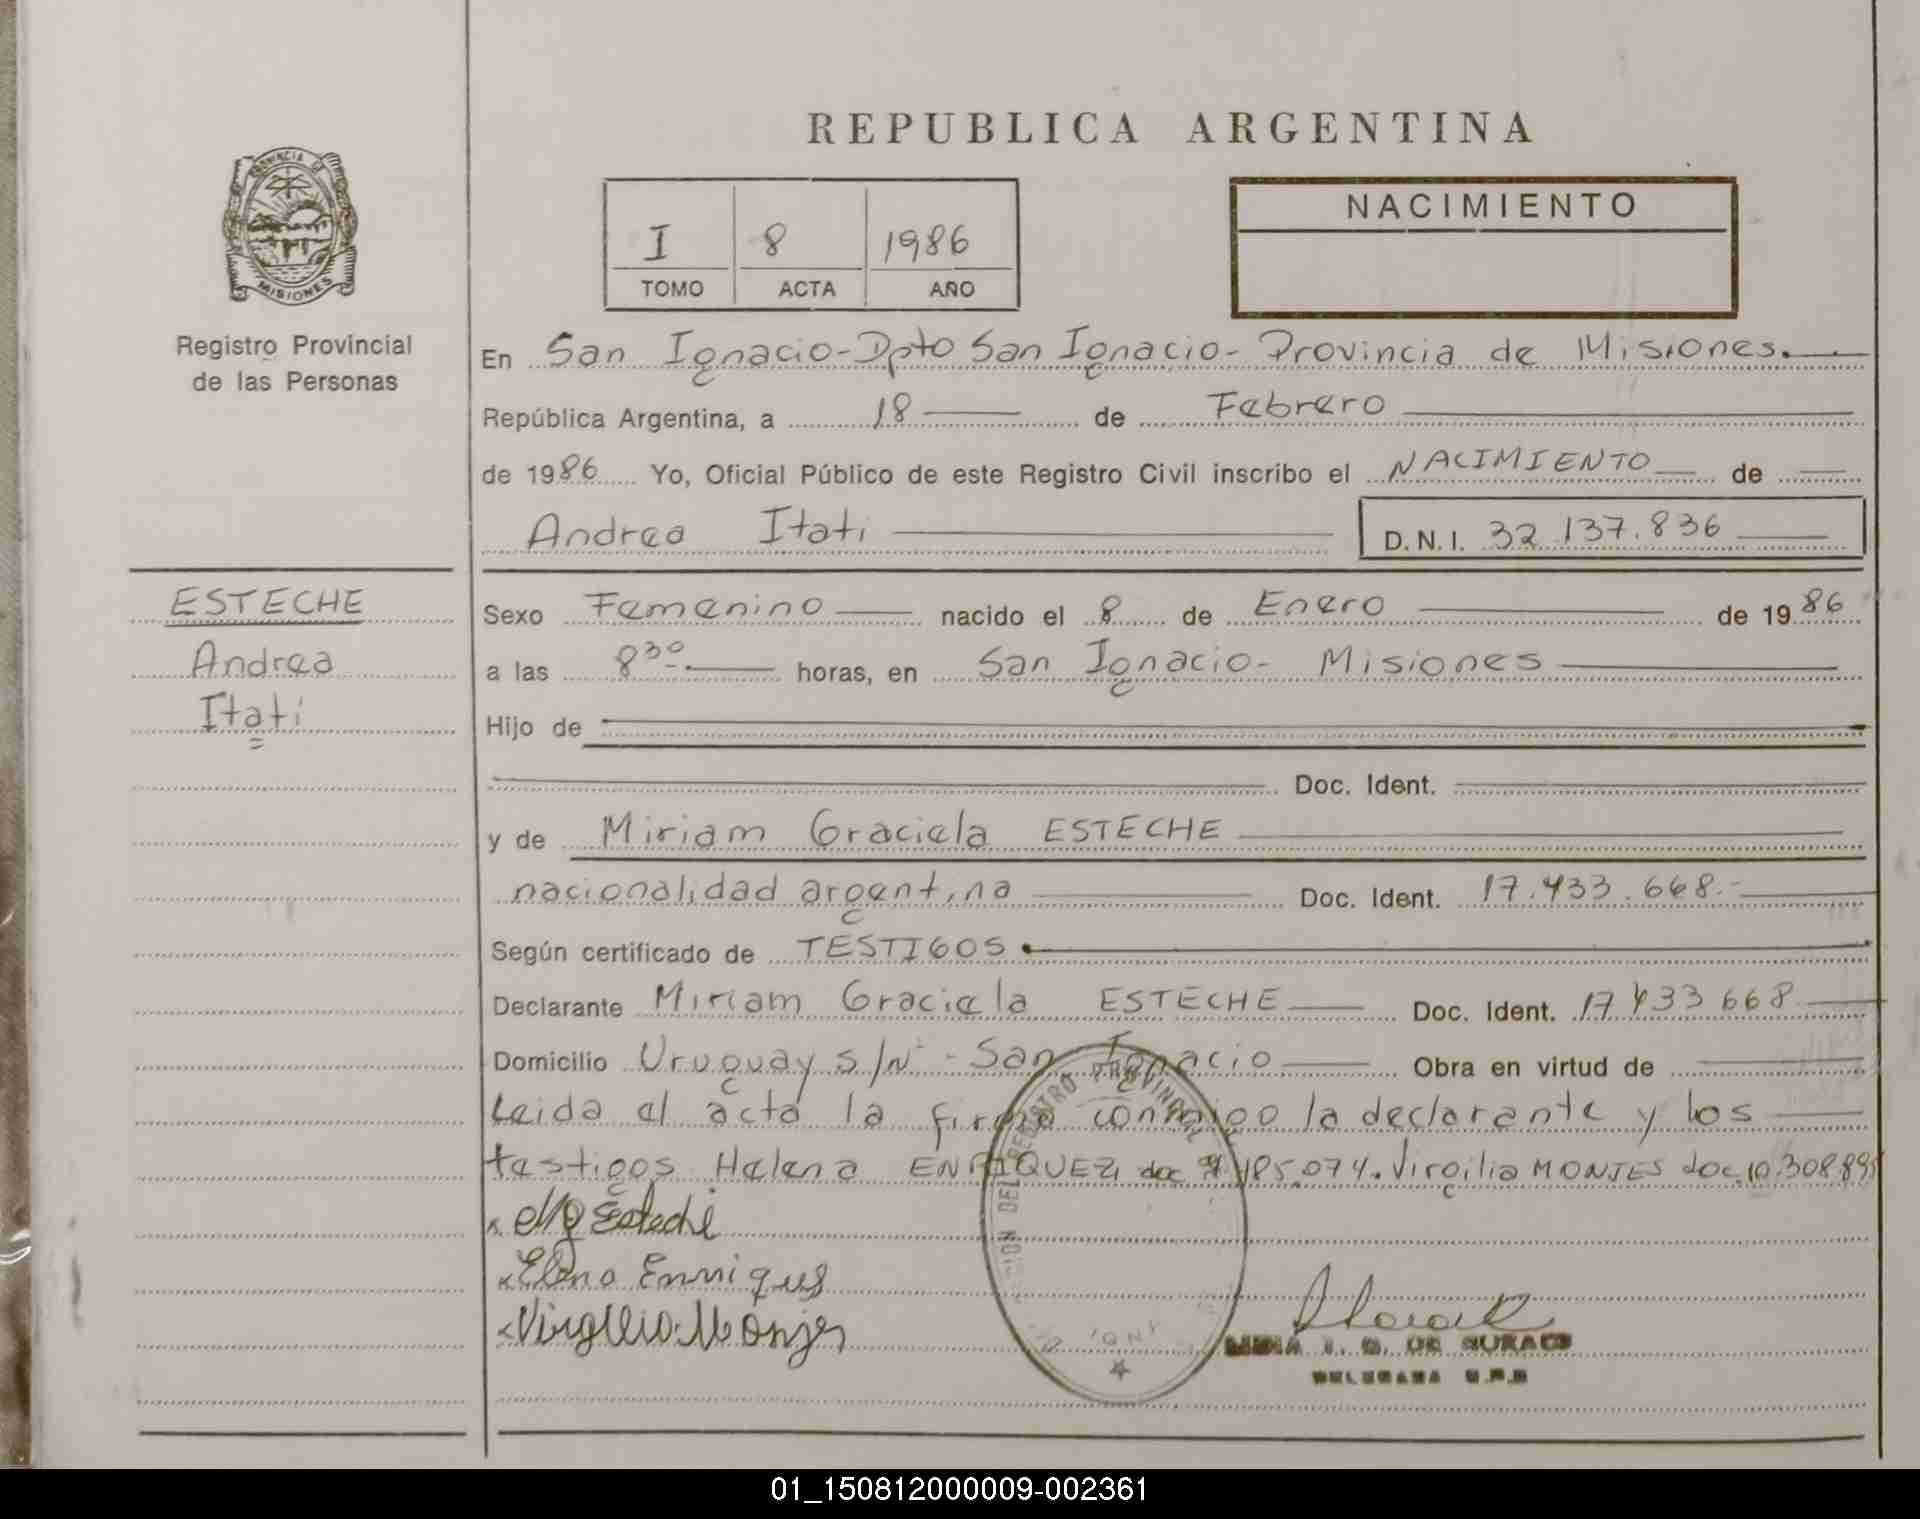 REPUBLICA ARGENTINA
PROVINCIA DE MISIONES
Registro Provincial
de las Personas
I 8 1986
TOMO ACTA AÑO
NACIMIENTO
En San Ignacio-Dpto San Ignacio- Provincia de Misiones.
República Argentina, a 18 de Febrero
de 1986 Yo, Oficial Público de este Registro Civil inscribo el NACIMIENTO de
Andrea Itati D.N.I. 32.137.836
ESTECHE
Andrea
Itati
Sexo Femenino nacido el 8 de Enero de 1986
a las 8 30 horas, en San Ignacio- Misiones
Hijo de
Doc. Ident.
y de Miriam Graciela ESTECHE
nacionalidad argentina Doc. Ident. 17.433.668.-
Según certificado de TESTIGOS
Declarante Miriam Graciela ESTECHE Doc. Ident. 17 433 668
Domicilio Uruguay s/N° - San Ignacio Obra en virtud de
Leida el acta la firma conmigo la declarante y los
testigos Helena ENRIQUEZ, doc 185.074. Virgilio MONJES doc.10.308.895
Esteche
Elena Enriques
Virgilio Monjes
DEL REGISTRO PROVINCIAL
DE SURACE
DELEGADA R.P.P
01_150812000009-002361